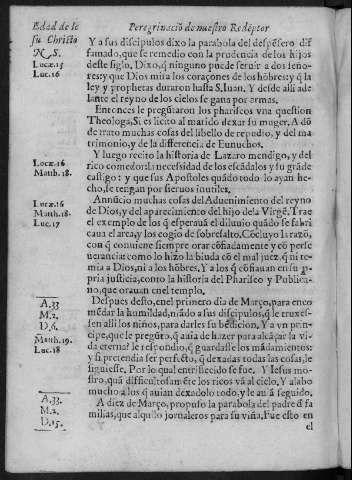 Edad de Ie Peregrinació de nuestro Redẽptor
su Christo
N. S.
Lucæ.15
Luc.16
Y a sus discipulos dixo la parabola del despẽsero dif
famado, que se remedio con la prudencia de los hijos
deste siglo. Dixo, q̃ ninguno puede seruir a dos seño-
res: y que Dios mira los coraçones de los hõbres: y q̃ la
ley y prophetas duraron hasta S. Iuan. Y desde alli ade
lante el reyno de los cielos se gana por armas.
Entonces le pregũtaron los phariseos vna question
Theologa, Si es licito al marido dexar su muger. A dõ
de trato muchas cosas del libello de repudio, y del ma-
trimonio, y de la differencia de Eunuchos.
Lucæ.16
Matth.18.
Y luego recito la historia de Lazaro mendigo, y del
rico comedor: la necessidad de los escãdalos y su grãde
castigo: y que sus Apostoles quãdo todo lo ayan he-
cho, se tengan por sieruos inutiles.
Lucæ.16
Matth.18.
Luc.17
Annũcio muchas cosas del Aduenimiento del reyno
de Dios, y del aparecimiento del hijo de la Virgẽ. Trae
el exemplo de los q̃ esperauã el diluuio quãdo se fabri
caua el arca, y los cogio de sobresalto. Cõcluyo la razõ,
con q̃ conuiene siempre orar cõfiadamente y cõ perse
uerancia: como lo hizo la biuda cõ el mal juez, q̃ ni te-
mia a Dios, ni a los hõbres. Y a los q̃ cõfiauan en su p̃-
pria justicia, conto la historia del Phariseo y Publica-
no, que orauan en el templo.
A.33
M.2.
D.6.
Matth.19.
Luc.18
Despues desto, en el primero dia de Março, para enco
mẽdar la humildad, mãdo a sus discipulos, q̃ le truxes-
sen alli los niños, para darles su bẽdicion. Y a vn prin-
cipe, que le pregũto, q̃ auia de hazer para alcãçar la vi-
da eterna: le respondio, q̃ guardasse los mãdamientos:
y si pretendia ser perfecto, q̃ dexadas todas las cosas, le
siguiesse. Por lo qual entristecido se fue. Y Iesus mo-
stro, quã difficultosamẽte los ricos vã al cielo. Y alabo
mucho a los q̃ auian dexadolo todo, y le auiã seguido.
A.33.
M.2.
D.15.
A diez de Março, propuso la parabola del padre d̃ fa
milias, que alquilo jornaleros para su viña. Fue esto en
el